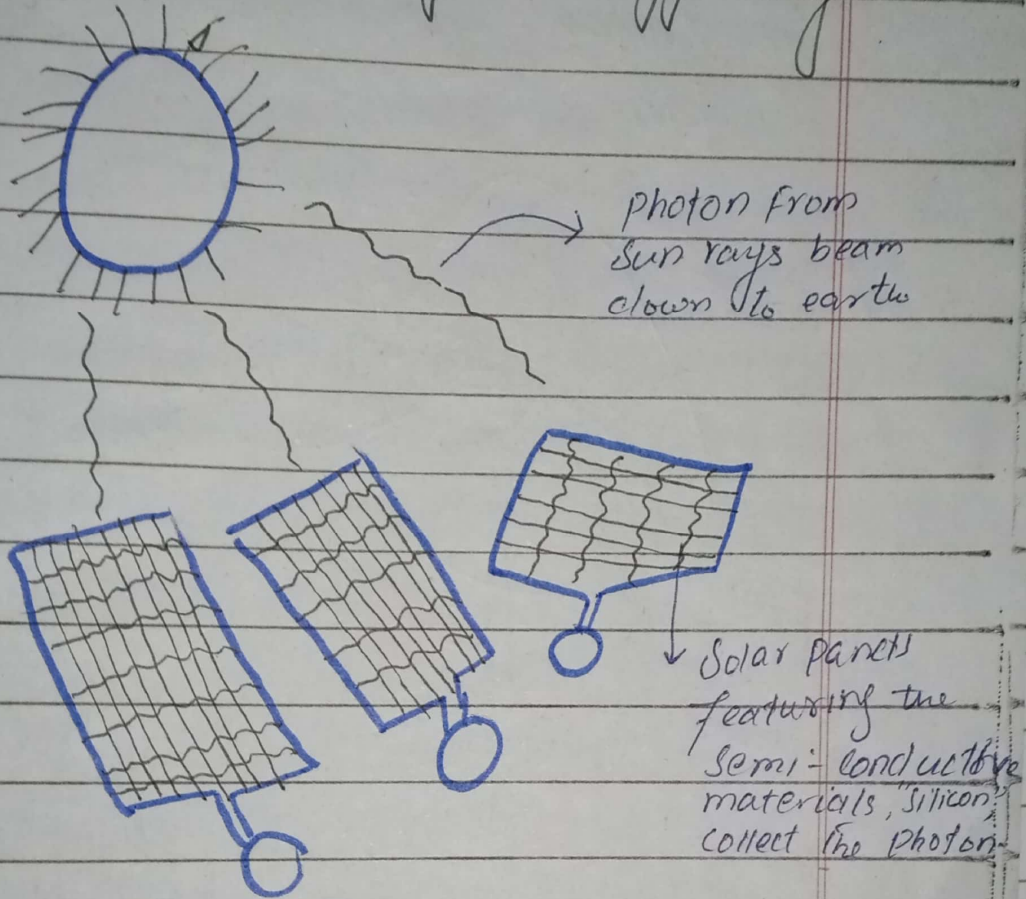 photon From
Sun rays beam
down to earth
Solar panels
featuring the
semi-conductive
materials, "silicon"
collect the photon